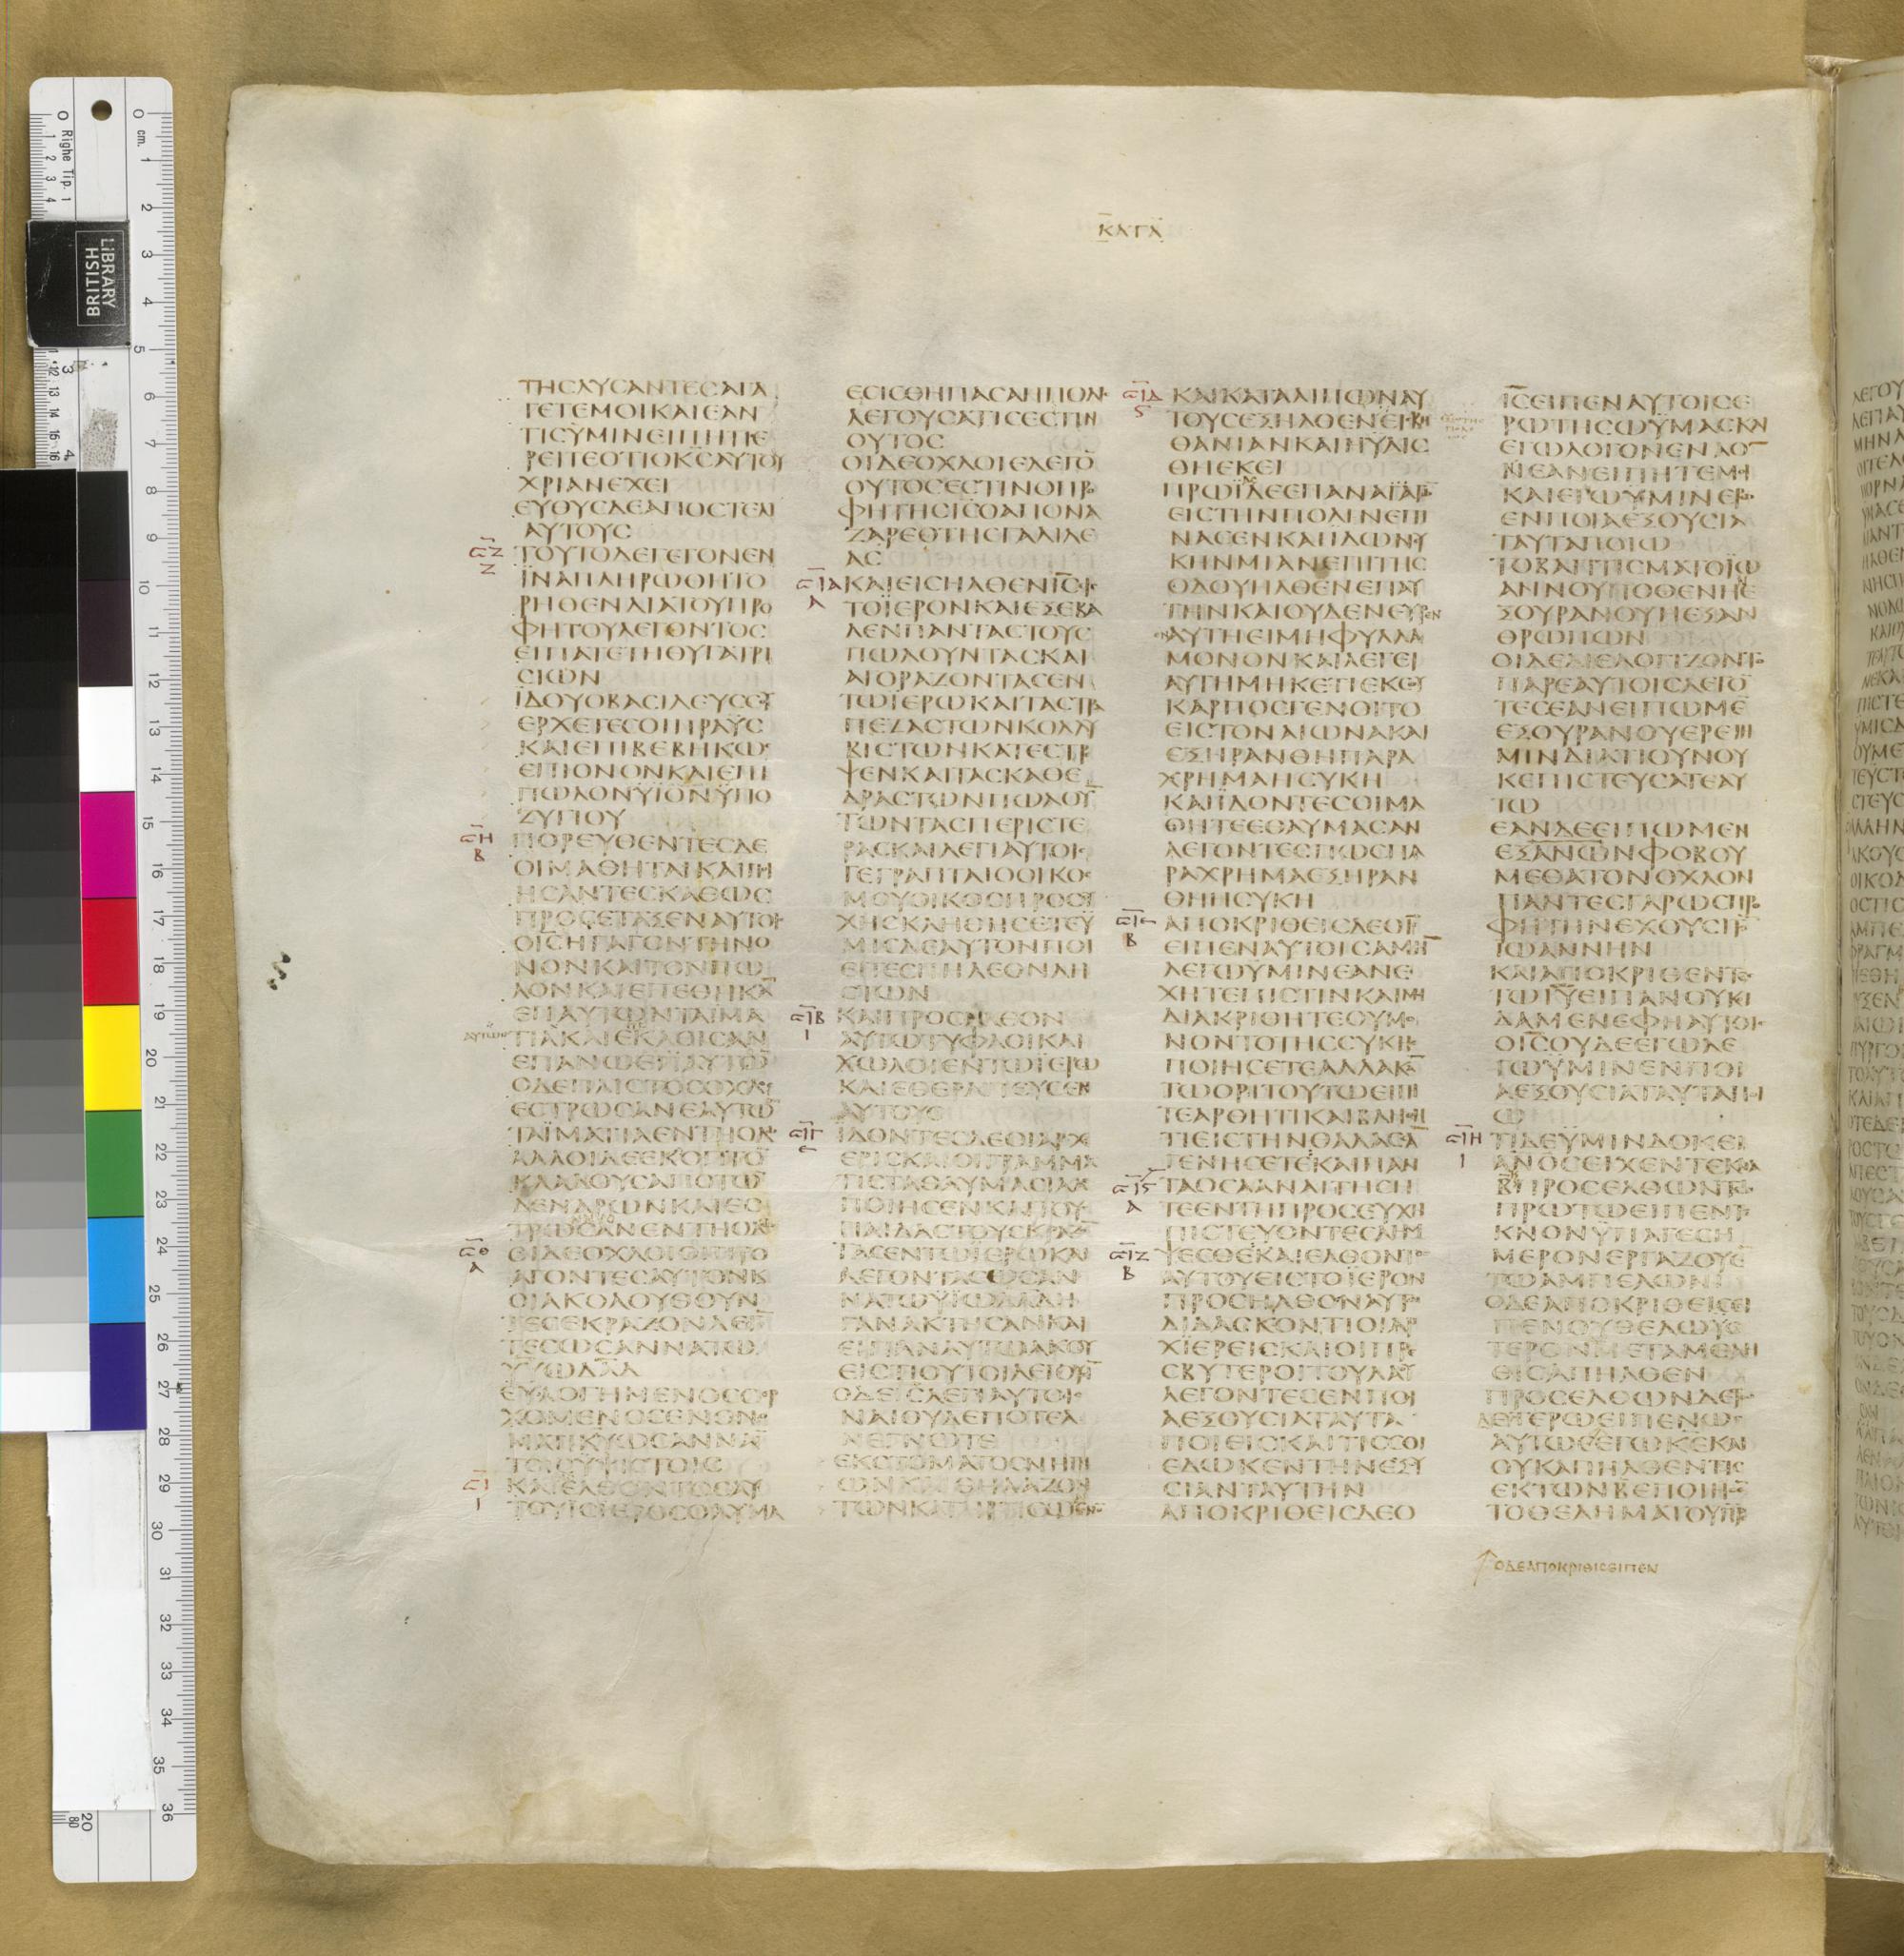 ΚΑΤΑ
ΤΗCΛΥCΑΝΤΕCΑΓΑ
ΓΕΤΕΜΟΙΚΑΙΕΑΝ
ΤΙCΫΜΙΝΕΙΠΗΤΙΕ
ΡΕΙΤΕΟΤΙΟΚCΑΥΤΟΥ
ΧΡΙΑΝΕΧΕΙ
ΕΥΘΥCΔΕΑΠΟCΤΕΛΙ
ΑΥΤΟΥC
CZ
ΤΟΥΤΟΔΕΓΕΓΟΝΕΝ
Z
ΪΝΑΠΛΗΡΩΘΗΤΟ
ΡΗΘΕΝΔΙΑΤΟΥΠΡΟ
ΦΗΤΟΥΛΕΓΟΝΤΟC
ΕΙΠΑΤΕΤΗΘΥΓΑΤΡΙ
CΙΩΝ
ΪΔΟΥΟΒΑCΙΛΕΥCCΟΥ
ΕΡΧΕΤΕCΟΙΠΡΑΫC
ΚΑΙΕΠΙΒΕΒΗΚΩC
ΕΠΙΟΝΟΝΚΑΙΕΠΙ
ΠΩΛΟΝΫΙΟΝΫΠΟ
ΖΥΓΙΟΥ
CΗ
ΠΟΡΕΥΘΕΝΤΕCΔΕ
Β
ΟΙΜΑΘΗΤΑΙΚΑΙΠΟΙ
ΗCΑΝΤΕCΚΑΘΩC
ΠΡΟCΕΤΑΞΕΝΑΥΤΟΙC
ΟΙCΗΓΑΓΟΝΤΗΝΟ
ΝΟΝΚΑΙΤΟΝΠΩ
ΛΟΝΚΑΙΕΠΕΘΗΚΑ̅
ΕΠΑΥΤΩΝΤΑΙΜΑ
ΑΥΤΩΝ
ΤΙΑΚΑΙΕΚΑΘΙCΑΝ
ΕΠΑΝΩΕΠΑΥΤΩ̅
ΟΔΕΠΛΙCΤΟCΟΧΛΟC
ΕCΤΡΩCΑΝΕΑΥΤΩ̅
ΤΑΪΜΑΤΙΑΕΝΤΗΟΔΩ
ΑΛΛΟΙΔΕΕΚΟΠΤΟ̅
ΚΛΑΔΟΥCΑΠΟΤΩ̅
ΔΕΝΔΡΩΝΚΑΙΕC
ΤΡΩCΑΝΕΝΤΗΟΔΩ
CΘ
ΟΙΔΕΟΧΛΟΙΟΙΠΡΟ
Α
ΑΓΟΝΤΕCΑΥΤΟΝΚ
ΟΙΑΚΟΛΟΥΘΟΥΝ
ΤΕCΕΚΡΑΖΟΝΛΕΓΟ̅
ΤΕCΩCΑΝΝΑΤΩ
ΥΙΩΔΑΔ
ΕΥΛΟΓΗΜΕΝΟCΟΕΡ
ΧΟΜΕΝΟCΕΝΟΝΟ
ΜΑΤΙΚΥΩCΑΝΝΑΕ̅
ΤΟΙCΥΨΙCΤΟΙC
CΙ
ΚΑΙΕΛΘΟΝΤΟCΑΥ
Ι
ΤΟΥΙCΙΕΡΟCΟΛΥΜΑ
ΕCΙCΘΗΠΑCΑΗΠΟΛΙC
ΛΕΓΟΥCΑΤΙCΕCΤΙΝ
ΟΥΤΟC
ΟΙΔΕΟΧΛΟΙΕΛΕΓΟ̅
ΟΥΤΟCΕCΤΙΝΟΠΡΟ
ΦΗΤΗCΙCΟΑΠΟΝΑ
ΖΑΡΕΘΤΗCΓΑΛΙΛΕ
ΑC
CΙΑ
ΚΑΙΕΙCΗΛΘΕΝΙCΕΙC
Α
ΤΟΪΕΡΟΝΚΑΙΕΞΕΒΑ
ΛΕΝΠΑΝΤΑCΤΟΥC
ΠΩΛΟΥΝΤΑCΚΑΙ
ΑΓΟΡΑΖΟΝΤΑCΕΝ
ΤΩΪΕΡΩΚΑΙΤΑCΤΡΑ
ΠΕΖΑCΤΩΝΚΟΛΛΥ
ΒΙCΤΩΝΚΑΤΕCΤΡΕ
ΨΕΝΚΑΙΤΑCΚΑΘΕ
ΔΡΑCΤΩΝΠΩΛΟΥ̅
ΤΩΝΤΑCΠΕΡΙCΤΕ
ΡΑCΚΑΙΛΕΓΙΑΥΤΟΙC
ΓΕΓΡΑΠΤΑΙΟΟΙΚΟC
ΜΟΥΟΙΚΟCΠΡΟCΕΥ
ΧΗCΚΛΗΘΗCΕΤΕΫ
ΜΙCΔΕΑΥΤΟΝΠΟΙ
ΕΙΤΕCΠΗΛΕΟΝΛΗ
CΤΩΝ
CΙΒ
ΚΑΙΠΡΟCΗΛΘΟΝ
Ι
ΑΥΤΩΤΥΦΛΟΙΚΑΙ
ΧΩΛΟΙΕΝΤΩΪΕΡΩ
ΚΑΙΕΘΕΡΑΠΕΥCΕΝ
ΑΥΤΟΥC
CΙΓ
ΙΔΟΝΤΕCΔΕΟΙΑΡΧΙ
ΕΡΙCΚΑΙΟΙΓΡΑΜΜΑ
ΤΙCΤΑΘΑΥΜΑCΙΑΑ
ΠΟΙΗCΕΝΚΑΙΤΟΥC
ΠΑΙΔΑCΤΟΥCΚΡΑΖΟ̅
ΤΑCΕΝΤΩΪΕΡΩΚΑΙ
ΛΕΓΟΝΤΑCΩCΑΝ
ΝΑΤΩΫΙΩΔΑΔΗ
ΓΑΝΑΚΤΗCΑΝΚΑΙ
ΕΙΠΑΝΑΥΤΩΑΚΟΥ
ΕΙCΤΙΟΥΤΟΙΛΕΓΟΥCΙ̅
ΟΔΕΙCΛΕΓΙΑΥΤΟΙC
ΝΑΙΟΥΔΕΠΟΤΕΑ
ΝΕΓΝΩΤΕ
ΕΚCΤΟΜΑΤΟCΝΗΠΙ
ΩΝΚΑΙΘΗΛΑΖΟΝ
ΤΩΝΚΑΤΗΡΤΙCΩΑΙΝΟ̅
CΙΔ
ΚΑΙΚΑΤΑΛΙΠΩΝΑΥ
ΤΟΥCΕΞΗΛΘΕΝΕΙCΒΗ
ΘΑΝΙΑΝΚΑΙΗΥΛΙC
ΘΗΕΚΕΙ
ΠΡΩΪΔΕΕΠΑΝΑΓΑΓΩ̅
ΕΙCΤΗΝΠΟΛΙΝΕΠΙ
ΝΑCΕΝΚΑΙΙΔΩΝCΥ
ΚΗΝΜΙΑΝΕΠΙΤΗC
ΟΔΟΥΗΛΘΕΝΕΠΑΥ
ΤΗΝΚΑΙΟΥΔΕΝΕΥΡΕΝ
ΕΝΑΥΤΗΕΙΜΗΦΥΛΛΑ
ΜΟΝΟΝΚΑΙΛΕΓΕΙ
ΑΥΤΗΜΗΚΕΤΙΕΚCΟΥ
ΚΑΡΠΟCΓΕΝΟΙΤΟ
ΕΙCΤΟΝΑΙΩΝΑΚΑΙ
ΕΞΗΡΑΝΘΗΠΑΡΑ
ΧΡΗΜΑΗCΥΚΗ
ΚΑΙΪΔΟΝΤΕCΟΙΜΑ
ΘΗΤΕΕΘΑΥΜΑCΑΝ
ΛΕΓΟΝΤΕCΠΩCΠΑ
ΡΑΧΡΗΜΑΕΞΗΡΑΝ
ΘΗΗCΥΚΗ
ΑΠΟΚΡΙΘΕΙCΔΕΟΙC
Β
ΕΙΠΕΝΑΥΤΟΙCΑΜΗ̅
ΛΕΓΩΥΜΙΝΕΑΝΕ
ΧΗΤΕΠΙCΤΙΝΚΑΙΜΗ
ΔΙΑΚΡΙΘΗΤΕΟΥΜΟ
ΝΟΝΤΟΤΗCCΥΚΗC
ΠΟΙΗCΕΤΕΑΛΛΑΚΑ̅
ΤΩΟΡΙΤΟΥΤΩΕΙΠΗ
ΤΕΑΡΘΗΤΙΚΑΙΒΛΗΘΗ
ΤΙΕΙCΤΗΝΘΑΛΑCCΑ̅
ΓΕΝΗCΕΤΕΚΑΙΠΑΝ
CΙϚ
ΤΑΟCΑΑΝΑΙΤΗCΗ
Δ
ΤΕΕΝΤΗΠΡΟCΕΥΧΗ
ΠΙCΤΕΥΟΝΤΕCΛΗΜ
CΙΖ
ΨΕCΘΕΚΑΙΕΛΘΟΝΤΟC
Β
ΑΥΤΟΥΕΙCΤΟΪΕΡΟΝ
ΠΡΟCΗΛΘΟΝΑΥΤΩ
ΔΙΔΑCΚΟΝΤΙΟΙΑΡ
ΧΙΕΡΕΙCΚΑΙΟΙΠΡΕ
CΒΥΤΕΡΟΙΤΟΥΛΑΟΥ
ΛΕΓΟΝΤΕCΕΝΠΟΙ
ΑΕΞΟΥCΙΑΤΑΥΤΑ
ΠΟΙΕΙCΚΑΙΤΙCCΟΙ
ΕΔΩΚΕΝΤΗΝΕΞΟΥ
CΙΑΝΤΑΥΤΗΝ
ΑΠΟΚΡΙΘΕΙCΔΕΟ
ΙCΕΙΠΕΝΑΥΤΟΙCΕ
ΡΩΤΗCΩΫΜΑCΚΑΙ
ΕΓΩΛΟΓΟΝΕΝΑΟ̅
ΝΕΑΝΕΙΠΗΤΕΜΟΙ
ΚΑΙΕΓΩΥΜΙΝΕΡΩ
ΕΝΠΟΙΑΕΞΟΥCΙΑ
ΤΑΥΤΑΠΟΙΩ
ΤΟΒΑΠΤΙCΜΑΤΟΪΩ
ΑΝΝΟΥΠΟΘΕΝΗΕ
ΞΟΥΡΑΝΟΥΗΕΞΑΝ
ΘΡΩΠΩΝ
ΟΙΔΕΔΙΕΛΟΓΙΖΟΝΤΟ
ΠΑΡΕΑΥΤΟΙCΛΕΓΟ̅
ΤΕCΕΑΝΕΙΠΩΜΕ
ΕΞΟΥΡΑΝΟΥΕΡΕΙΗ
ΜΙΝΔΙΑΤΙΟΥΝΟΥ
ΚΕΠΙCΤΕΥCΑΤΕΑΥ
ΤΩ
ΕΑΝΔΕΕΙΠΩΜΕΝ
ΕΞΑΝΩΝΦΟΒΟΥ
ΜΕΘΑΤΟΝΟΧΛΟΝ
ΠΑΝΤΕCΓΑΡΩCΠΡΟ
ΦΗΤΗΝΕΧΟΥCΙΝ
ΙΩΑΝΝΗΝ
ΚΑΙΑΠΟΚΡΙΘΕΝΤΕC
ΤΩΙΥΕΙΠΑΝΟΥΚΙ
ΔΑΜΕΝΕΦΗΑΥΤΟΙC
ΟΙCΟΥΔΕΕΓΩΛΕ
ΓΩΫΜΙΝΕΝΠΟΙ
ΑΕΞΟΥCΙΑΤΑΥΤΑΠΟΙ
Ω
CΙΗ
ΤΙΔΕΫΜΙΝΔΟΚΕΙ
Ι
ΑΝΟCΕΙΧΕΝΤΕΚΝΑ
ΒΠΡΟCΕΛΘΩΝΤΩ
ΠΡΩΤΩΕΙΠΕΝΤΕ
ΚΝΟΝΫΠΑΓΕCΗ
ΜΕΡΟΝΕΡΓΑΖΟΥΕ̅
ΤΩΑΜΠΕΛΩΝΙ
ΟΔΕΑΠΟΚΡΙΘΕΙCΕΙ
ΠΕΝΟΥΘΕΛΩΥC
ΤΕΡΟΝΜΕΤΑΜΕΛΗ
ΘΙCΑΠΗΛΘΕΝ
ΠΡΟCΕΛΘΩΝΔΕΤΩ
ΔΕΥΤΕΡΩΕΙΠΕΝΩC
ΑΥΤΩCΕΓΩΚΕΚΑΙ
ΟΥΚΑΠΗΛΘΕΝΤΙC
ΕΚΤΩΝΒΕΠΟΙΗCΕ̅
ΤΟΘΕΛΗΜΑΤΟΥΠΡC
ΟΔΕΑΠΟΚΡΙΘΙCΕΙΠΕΝ